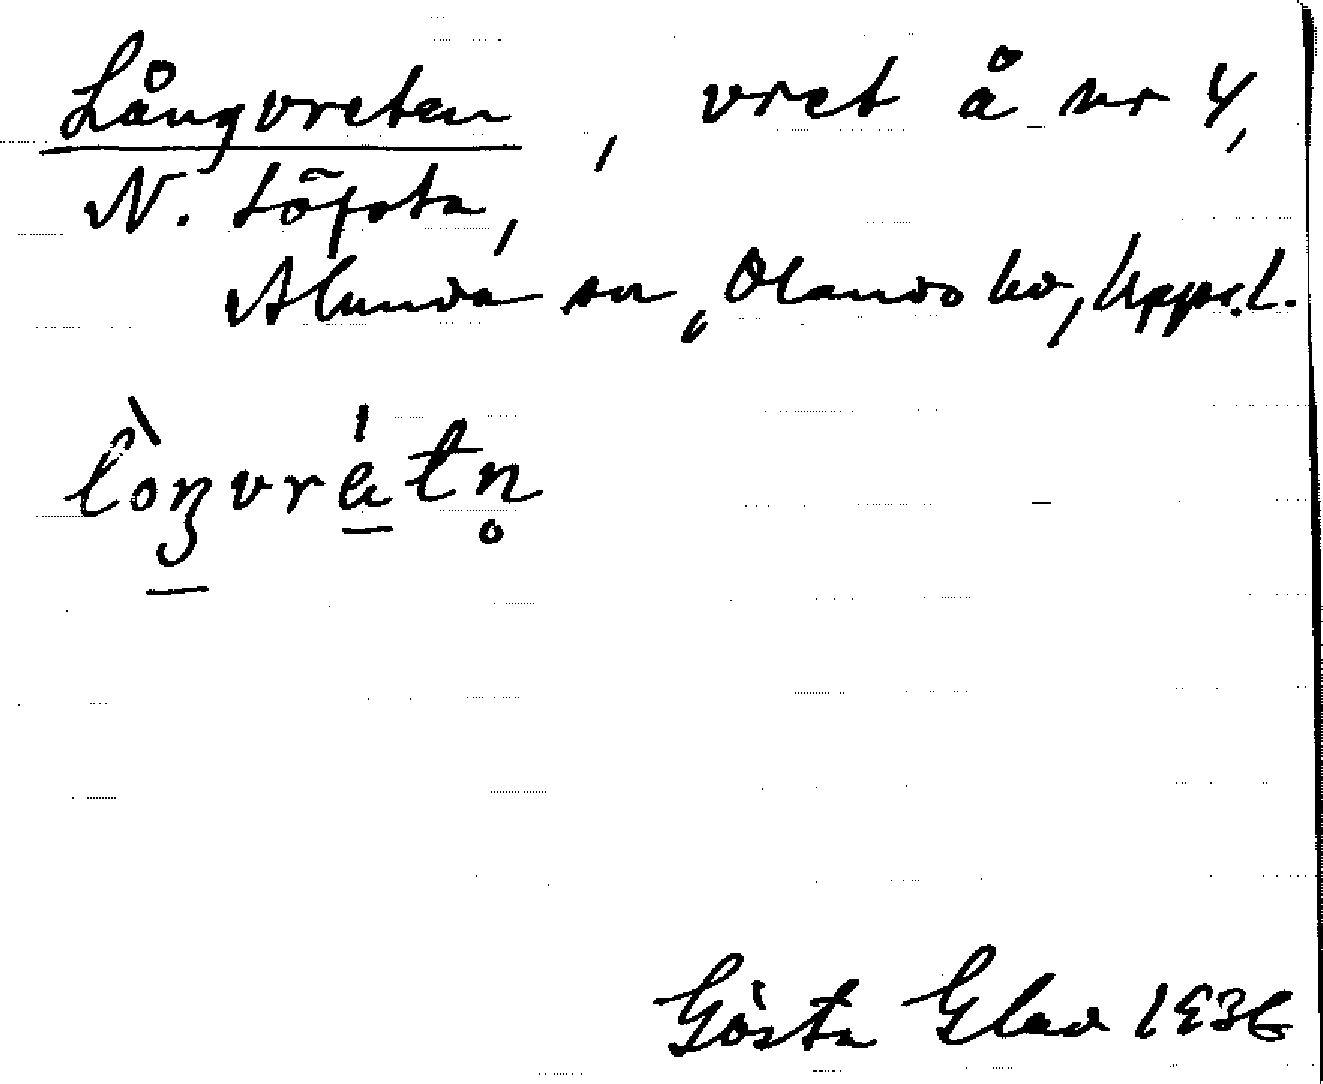 Långvreten, vret å nr 4,
N. Löfsta,
Alunda sn, Olands hd, Upps. l.
lòŋvrètn̥
Gösta Elav 1936